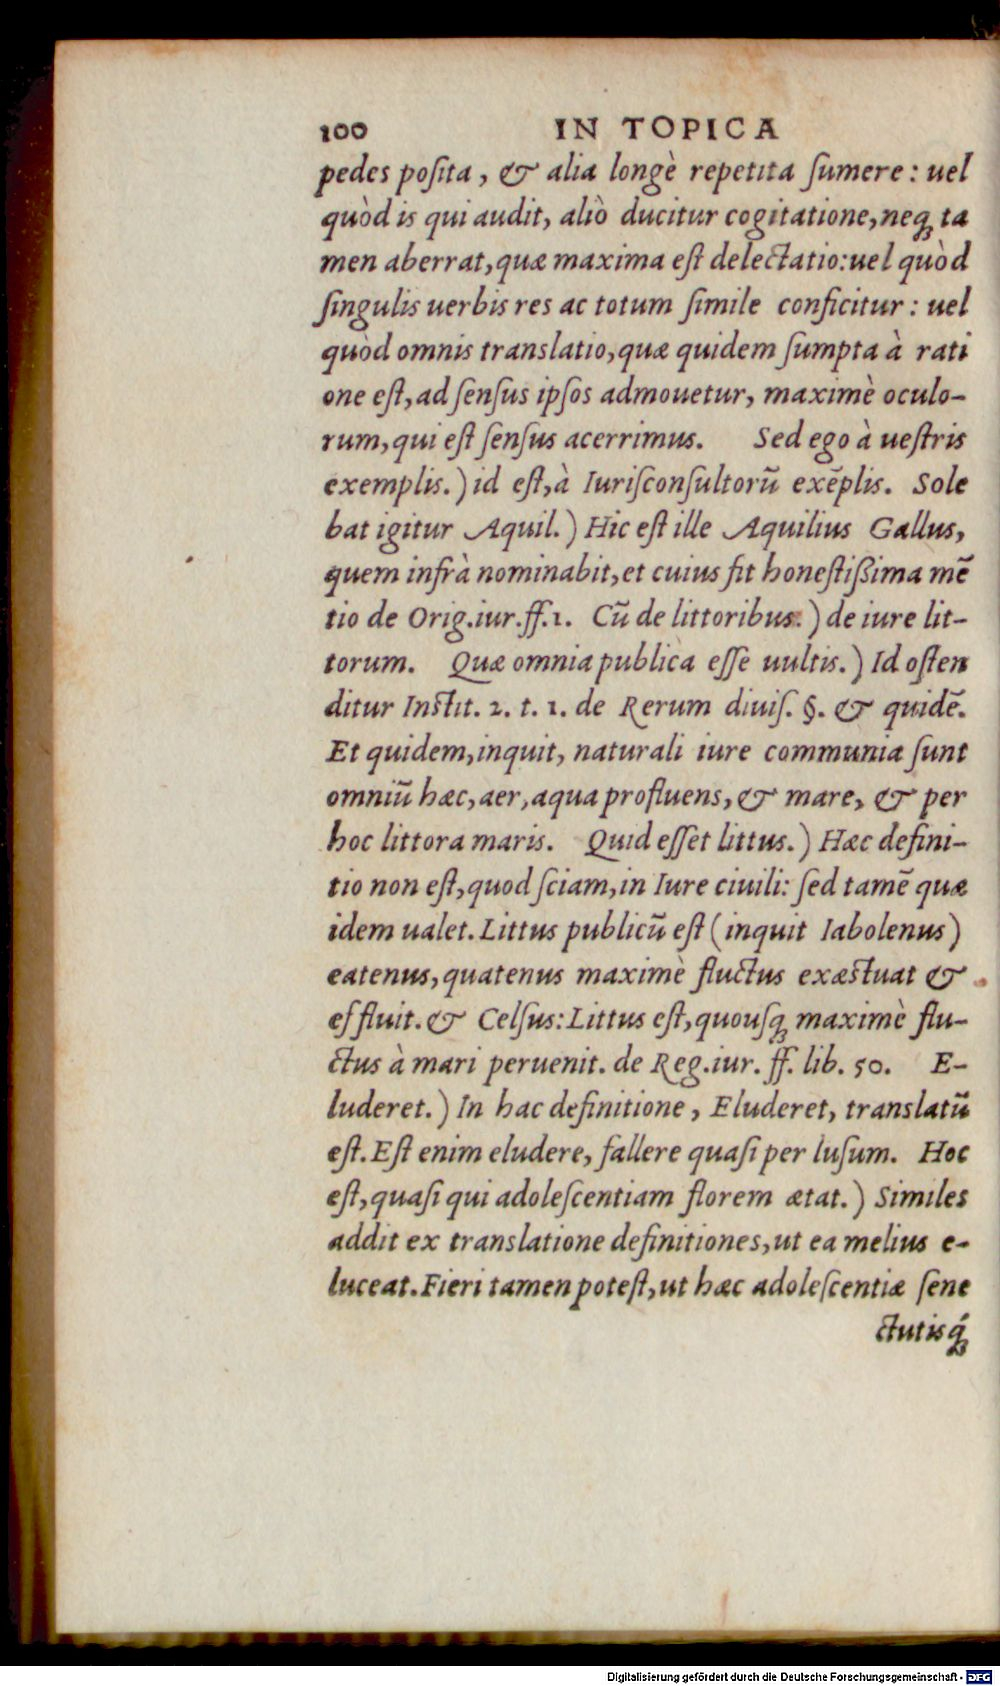 100 IN TOPICA
pedes poſita, & alia longè repetita ſumere: uel
quòd is qui audit, aliò ducitur cogitatione, neqꝫ ta
men aberrat, quæ maxima eſt delectatio: uel quòd
ſingulis uerbis res ac totum ſimile conficitur: uel
quòd omnis translatio, quæ quidem ſumpta à rati
one eſt, ad ſenſus ipſos admouetur, maximè oculo-
rum, qui eſt ſenſus acerrimus. Sed ego à ueſtris
exemplis.) id eſt, à Iuriſconſultorũ exẽplis. Sole
bat igitur Aquil.) Hic eſt ille Aquilius Gallus,
quem infrà nominabit, et cuius fit honeſtißima mẽ
tio de Orig. iur. ff. 1. Cũ de littoribus.) de iure lit-
torum. Quæ omnia publica eſſe uultis.) Id oſten
ditur Inſtit. 2. t. 1. de Rerum diuiſ. §. & quidẽ.
Et quidem, inquit, naturali iure communia ſunt
omniũ hæc, aer, aqua profluens, & mare, & per
hoc littora maris. Quid eſſet littus.) Hæc defini-
tio non eſt, quod ſciam, in Iure ciuili: ſed tamẽ quæ
idem ualet. Littus publicũ eſt (inquit Iabolenus)
eatenus, quatenus maximè fluctus exæſtuat &
effluit. & Celſus: Littus eſt, quouſqꝫ maximè flu-
ctus à mari peruenit. de Reg. iur. ff. lib. 50. E-
luderet.) In hac definitione, Eluderet, translatũ
eſt. Eſt enim eludere, fallere quaſi per luſum. Hoc
eſt, quaſi qui adoleſcentiam florem ætat.) Similes
addit ex translatione definitiones, ut ea melius e-
luceat. Fieri tamen poteſt, ut hæc adoleſcentiæ ſene
ctutisq́ꝫ
Digitalisierung gefördert durch die Deutsche Forschungsgemeinschaft - DFG